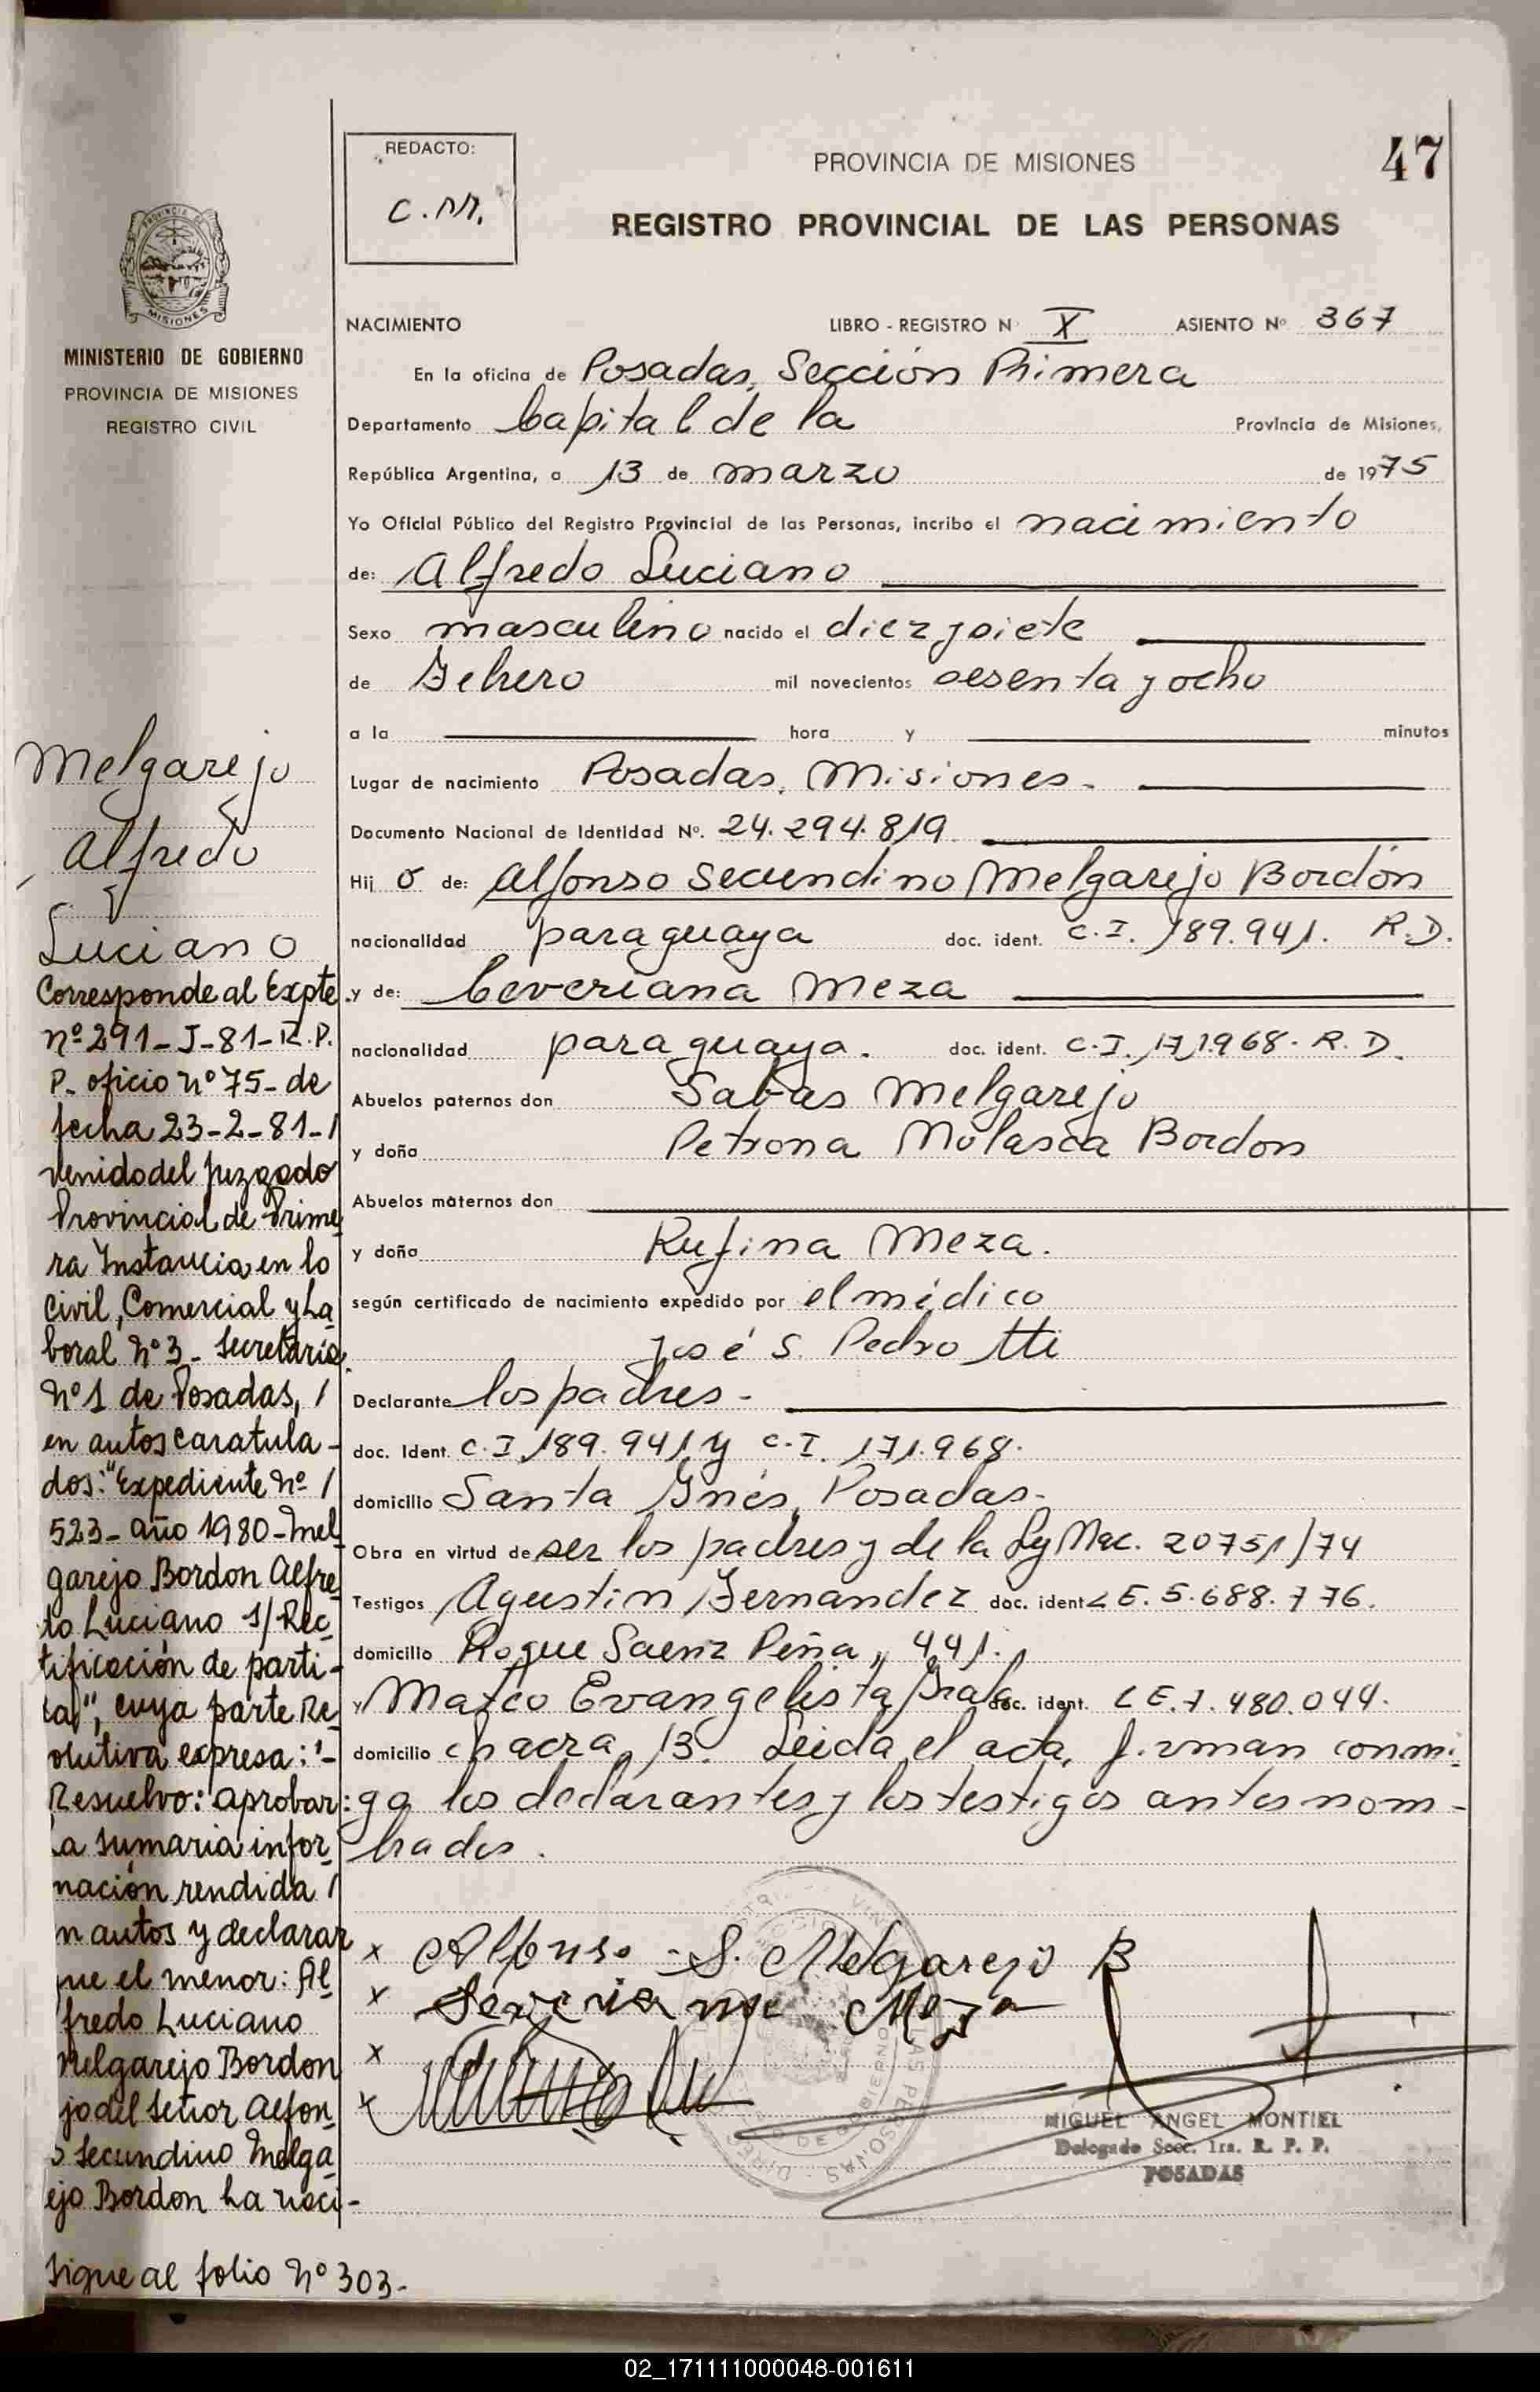 47
REDACTO:
C.M.
PROVINCIA DE MISIONES
REGISTRO PROVINCIAL DE LAS PERSONAS
MISIONES
MINISTERIO DE GOBIERNO
PROVINCIA DE MISIONES
REGISTRO CIVIL
NACIMIENTO LIBRO - REGISTRO Nº X ASIENTO Nº 367
En la oficina de Posadas, Sección Primera
Departamento Capital de la Provincia de Misiones,
República Argentina, a 13 de marzo de 1975
Yo Oficial Público del Registro Provincial de las Personas, incribo el nacimiento
de: Alfredo Luciano
Sexo masculino nacido el diez y siete
de Febrero mil novecientos sesenta y ocho
a la hora y minutos
Lugar de nacimiento Posadas, Misiones.-
Documento Nacional de Identidad Nº. 24.294.819
Hij o de: Alfonso Secundino Melgarejo Bordón
nacionalidad paraguaya doc. ident. C.I. 189.941. R.D.
y de: Ceveriana Meza
nacionalidad paraguaya. doc. ident. C.I. 171.968. R.D.
Abuelos paternos don Sabas Melgarejo
y doña Petrona Bordon
Abuelos maternos don
y doña Rufina Meza.
según certificado de nacimiento expedido por el médico
José S. Pedrotti
Declarante los padres.-
doc. Ident. C.I 189.941 y C.I. 171.968.
domicilio Santa Inés, Posadas-
Obra en virtud de ser los padres y de la Ley Nac. 20751/74
Testigos Agustin Fernandez doc. ident L E. 5.688.776.
domicilio Roque Saenz Peña, 441.
y Mateo Evangelista doc. ident. L E. 7.480.044.
domicilio chacra, 13. Leida el acta, firman conmi-
go los declarantes y los testigos antes nom-
brados.
x Alfonso S. Melgarejo B
x Severiana Meza
x
x
MIGUEL ANGEL MONTIEL
Delegado Secc. 1ra. R. P. P.
POSADAS
Melgarejo
Alfredo
Luciano
Corresponde al Expte
nº 291-J-81-R.P.
P. oficio nº 75- de
fecha 23-2-81-/
venido del Juzgado
Provincial de Prime
ra Instancia en lo
Civil, Comercial y La
boral Nº 3- Secretaría
Nº 1 de Posadas, /
en autos caratula-
dos: "Expediente Nº /
523- año 1980- Mel
garejo Bordon Alfre
do Luciano s/Rec
tificación de parti-
da", cuya parte Re
olutiva expresa:'-
Resuelvo: aprobar:
la sumaria infor
mación rendida /
n autos y declarar
que el menor: Al
fredo Luciano
Melgarejo Bordon
jo del Señor Alfon
o Secundino Melga
ejo Bordon ha naci-
Sigue al folio Nº 303.-
02_171111000048-001611